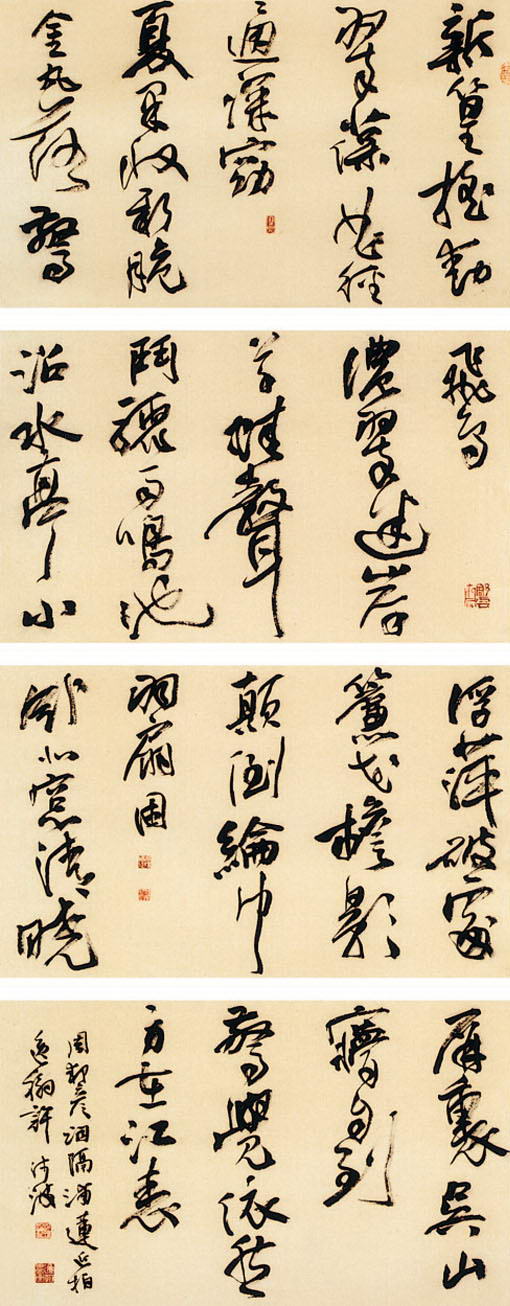 新篁搖動
翠葆曲徑
通深窈
夏果收新脆
金丸落驚
飛鳥
濃翠迷岸
草蛙聲
鬧驟雨鳴池
沼水亭小
浮萍破處
簾花檐影
顛倒綸巾
羽扇困
臥北窗清曉
屏裏吳山
夢自到
驚覺依然
身在江表
周邦彥詞隔浦蓮近拍